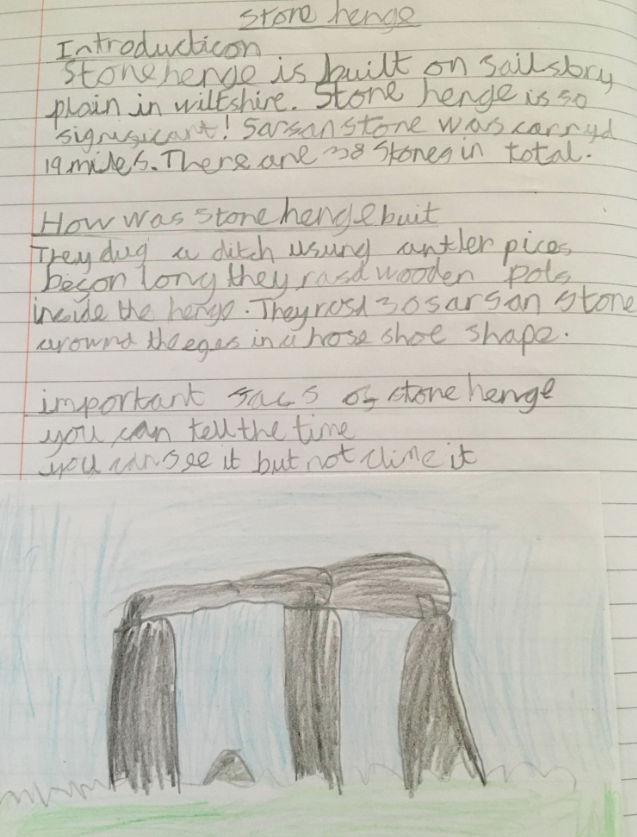 Stone henge
Introducticon
Stonehenge is built on sailsbry
plain in wiltshire. Stone henge is so
signisicant! Sarsan stone was carryd
19 miles. There are 38 stones in total.
How was stone henge buit
They dug a ditch usung antler pices
begon long they rasd wooden pols
inside the henge. They rasd 30 sarsan stone
around the eges in a hose shoe shape.
important sacs of stone henge
you can tell the time
you can see it but not clime it